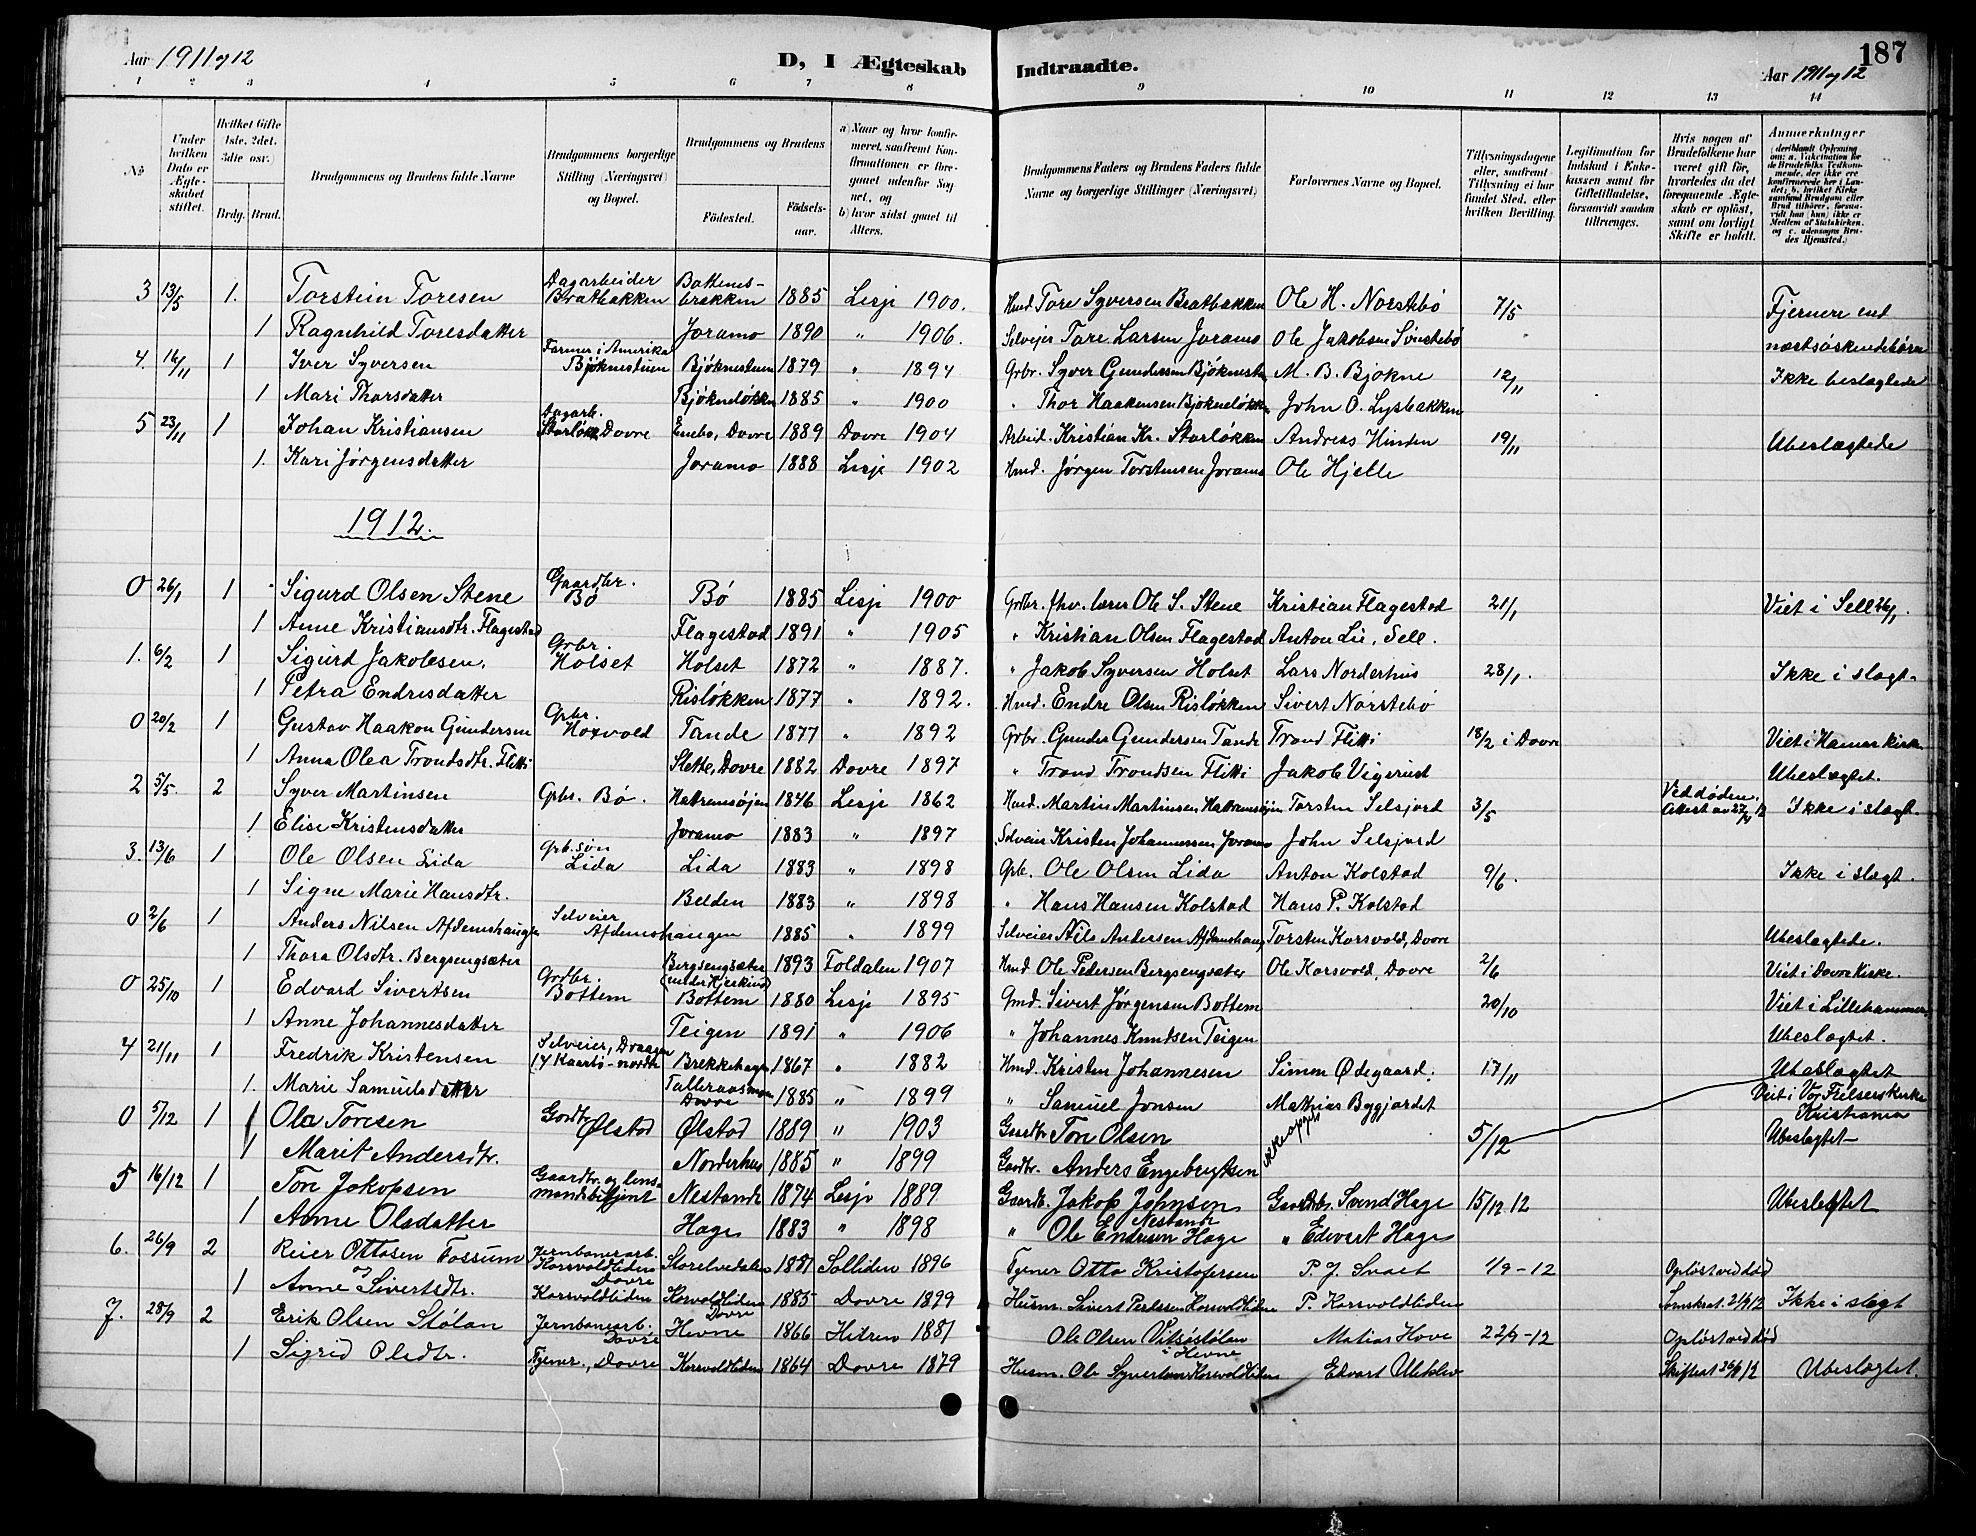 Aar 1911 og 12
D, I Ægteskab Indtraadte.
187
Aar 1911 og 12
1 2 3 4 5 6 7 8 9 10 11 12 13 14
No
Under hvilken Dato er Ægteskabet stiftet.
Hvilket Gifte 1ste, 2det, 3die osv.
Brdg. Brud.
Brudgommens og Brudens fulde Navne
Brudgommens borgerlige Stilling (Næringsvei) og Bopæl.
Brudgommens og Brudens
Fødested. Fødselsaar.
a) Naar og hvor konfirmeret, saafremt Konfirmationen er foregaaet udenfor Sognet, og b) hvor sidst gaaet til Alters.
Brudgommens Faders og Brudens Faders fulde Navne og borgerlige Stillinger (Næringsvei)
Forlovernes Navne og Bopæl.
Tillysningsdagene eller, saafremt Tillysning ei har fundet Sted, efter hvilken Bevilling.
Legitimation for Indskud i Enkekassen samt for Giftetilladelse, forsaavidt saadan tiltrænges.
Hvis nogen af Brudefolkene har været gift før, hvorledes da det foregaaende Ægteskab er opløst, samt om lovligt Skifte er holdt.
Anmerkninger (deriblandt Oplysning om: a. Vakcination for de Brudefolks Vedkommende, der ikke ere konfirmerede her i Landet; b. hvilket Kirkesamfund Brudgom eller Brud tilhører, forsaavidt han (hun) ikke er Medlem af Statskirken, og c. udensogns Brudes Hjemsted.)
3 13/5 1. Torstein Toresen Dagarbeider Bratbakken Bottemsbrekken 1885 Lesje 1900. Hmd. Tore Syversen Bratbakken Ole H. Norstebø 7/5 Fjernere end
1 Ragnhild Toresdatter Joramo 1890 " 1906. Selveier Tore Larsen Joramo Ole Jakobsen " næstsøskendebørn
4. 16/11 1 Iver Syversen Farmer i Amerika Bjøknestuen Bjøknestuen 1879 " 1894 Grbr. Syver Gundersen M. B. Bjøkne 12/11 Ikke beslægtede
1 Mari Thorsdatter Bjøkneløkken 1885 " 1900 " Thor Haakensen Bjøkneløkken John O. Lysbakken
5 23/11 1 Johan Kristiansen Dagarb. Storløkk. Dovre Enebo, Dovre 1889 Dovre 1904 Arbeid. Kristian Kr. Storløkken Andreas Hinden 19/11 Ubeslægtede
1. Kari Jørgensdatter Joramo 1888 Lesje 1902 Hmd. Jørgen Torstensen Joramo Ole Hjelle
1912.
0 26/1 1 Sigurd Olsen Stene Gaardbr. Bø Bø 1885 Lesje 1900 Grbr. fhv. lærer Ole S. Stene Kristian Flagestad 21/1 Viet i Sell 26/1.
1 Anne Kristiansdtr. Flagestad Flagestad 1891 " 1905 " Kristian Olsen Flagestad Anton Lie, Sell.
1. 6/2 1 Sigurd Jakobsen, Grbr. Holset Holset 1872 " 1887. " Jakob Syversen Holset Lars Norderhus 28/1. Ikke i slægt.
1 Petra Endresdatter Risløkken 1877 " 1892. Hmd. Endre Olsen Risløkken Sivert Norstebø
0 20/2 1 Gustav Haakon Gundersen Grbr. Hoxvold Tande 1877 " 1892 Grbr. Gunder Gundersen Tande Trond Flitti 18/2 i Dovre Viet i Hamar kirke
1 Anna Olea Trondsdtr. Flitti Slette, Dovre 1882 Dovre 1897 " Trond Trondsen Flitti Jakob Vigerust Ubeslægtet.
2 5/5. 2 Syver Martinsen Grbr. Bø. Hatremsøjen 1846 Lesje 1862 Hmd. Martin Martinsen Hatremsøjen Torsten Selsjord 3/5 Ved døden. Attest av 27/4 12 Ikke i slægt.
1 Elise Kristensdatter Joramo 1883 " 1897 Selveier Kristen Johannessen Joramo John Selsjord
3. 13/6 1 Ole Olsen Lida Grb. søn Lida Lida 1883 " 1898 Grb. Ole Olsen Lida Anton Kolstad 9/6. Ikke i slægt.
1 Signe Marie Hansdtr. Belden 1883 " 1898 " Hans Hansen Kolstad Hans P. Kolstad
0 2/6 1 Anders Nilsen Afdemshaugen Selveier Afdemshaugen 1885 " 1899 Selveier Nils Andersen Afdemshaug Torsten Korsvold, Dovre Ubeslægtede.
1 Thora Olsdtr. Bergsengsæter Bergsengsæter (under Hjerkind) 1893 Foldalen 1907 Hmd Ole Pedersen Bergsengsæter Ole Korsvold, Dovre 2/6 Viet i Dovre Kirke.
0 25/10 1 Edvard Sivertsen Grdbr. Bottem Bottem 1880 Lesje 1895 Gmd. Sivert Jørgensen Bottem 20/10 Viet i Lillehammer
1 Anne Johannesdatter Teigen 1891 " 1906 " Johannes Knutsen Teigen Ubeslægtet.
4 21/11 1 Fredrik Kristensen Selveier, Draagen 14 Kaarbø-nordre Brekkehagen 1867 " 1882 Hmd. Kristen Johannesen Simen Ødegaard. 17/11 Ubeslægtet
1. Marie Samuelsdatter Dovre 1885 " 1899 " Samuel Jonsen Mathias Bygjordet Viet i Vor Frelsers kirke Kristiania
0 5/12 1 Ola Toresen Gardbr. Ølstad Ølstad 1889 " 1903 Gaardbr Tore Olsen 5/12 Ubeslegtet
1 Marit Andersdtr. Norderhus 1885 " 1899 Gardbr. Anders Engebrigtsen
5 16/12 1 Tore Jakopsen Gaardbr. og lensmandsbetjent Nestande 1874 Lesje 1889 Gaardb. Jakop Johnsen Nestande Gardbr. Svend Hage 15/12 12 Ubeslegtet
1 Anne Olsdatter Hage 1883 " 1898 " Ole Endresen Hage " Edvart Hage
6. 26/9 2 Reier Ottosen Fossum Jernbanearb. Korsvoldliden Dovre Storelvedalen 1881 Solliden 1896 Tjener Otto Kristofersen P. J. Svaet 1/9-12 Opløst ved død
1 Anne Sivertsdtr. Korsvoldliden Korsvoldliden Dovre 1885 Dovre 1899 Husm. Sivert Pedersen Korsvoldliden P. Korsvoldliden 2/9 12 Ikke i slegt
7. 28/9 2 Erik Olsen Stølan Jernbanearb. Dovre Hevne 1866 Hitren 1881 Ole Olsen Vitsøstølan i Hevne Matias Hove 22/9-12 Opløst ved død
1 Sigrid Olsdtr. Tjener, Dovre Korsvoldliden 1864 Dovre 1879 Husm. Ole Syvertsen Korsvoldliden Edvart Ulekleiv Skifteat 26/9 12 Ubeslegtet.